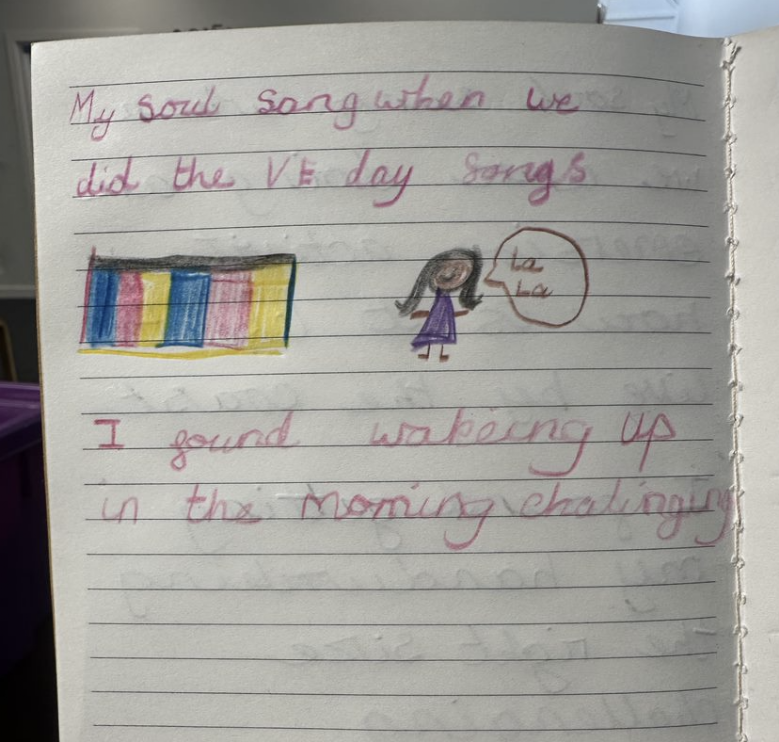 My soul sang when we
did the VE day songs
La
La
I gound wakeing up
in the morning chalinging